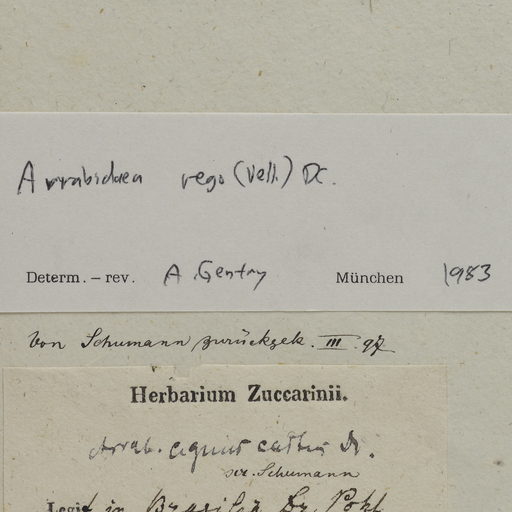 Arrabidaea rego (Vell.) DC.
Determ. – rev. A. Gentry München 1983
Von Schumann zurückgek. III. 97
Herbarium Zuccarinii.
Arrab. agnus castus D.
scr. Schumann
Legit in Brasilia Dr. Pohl